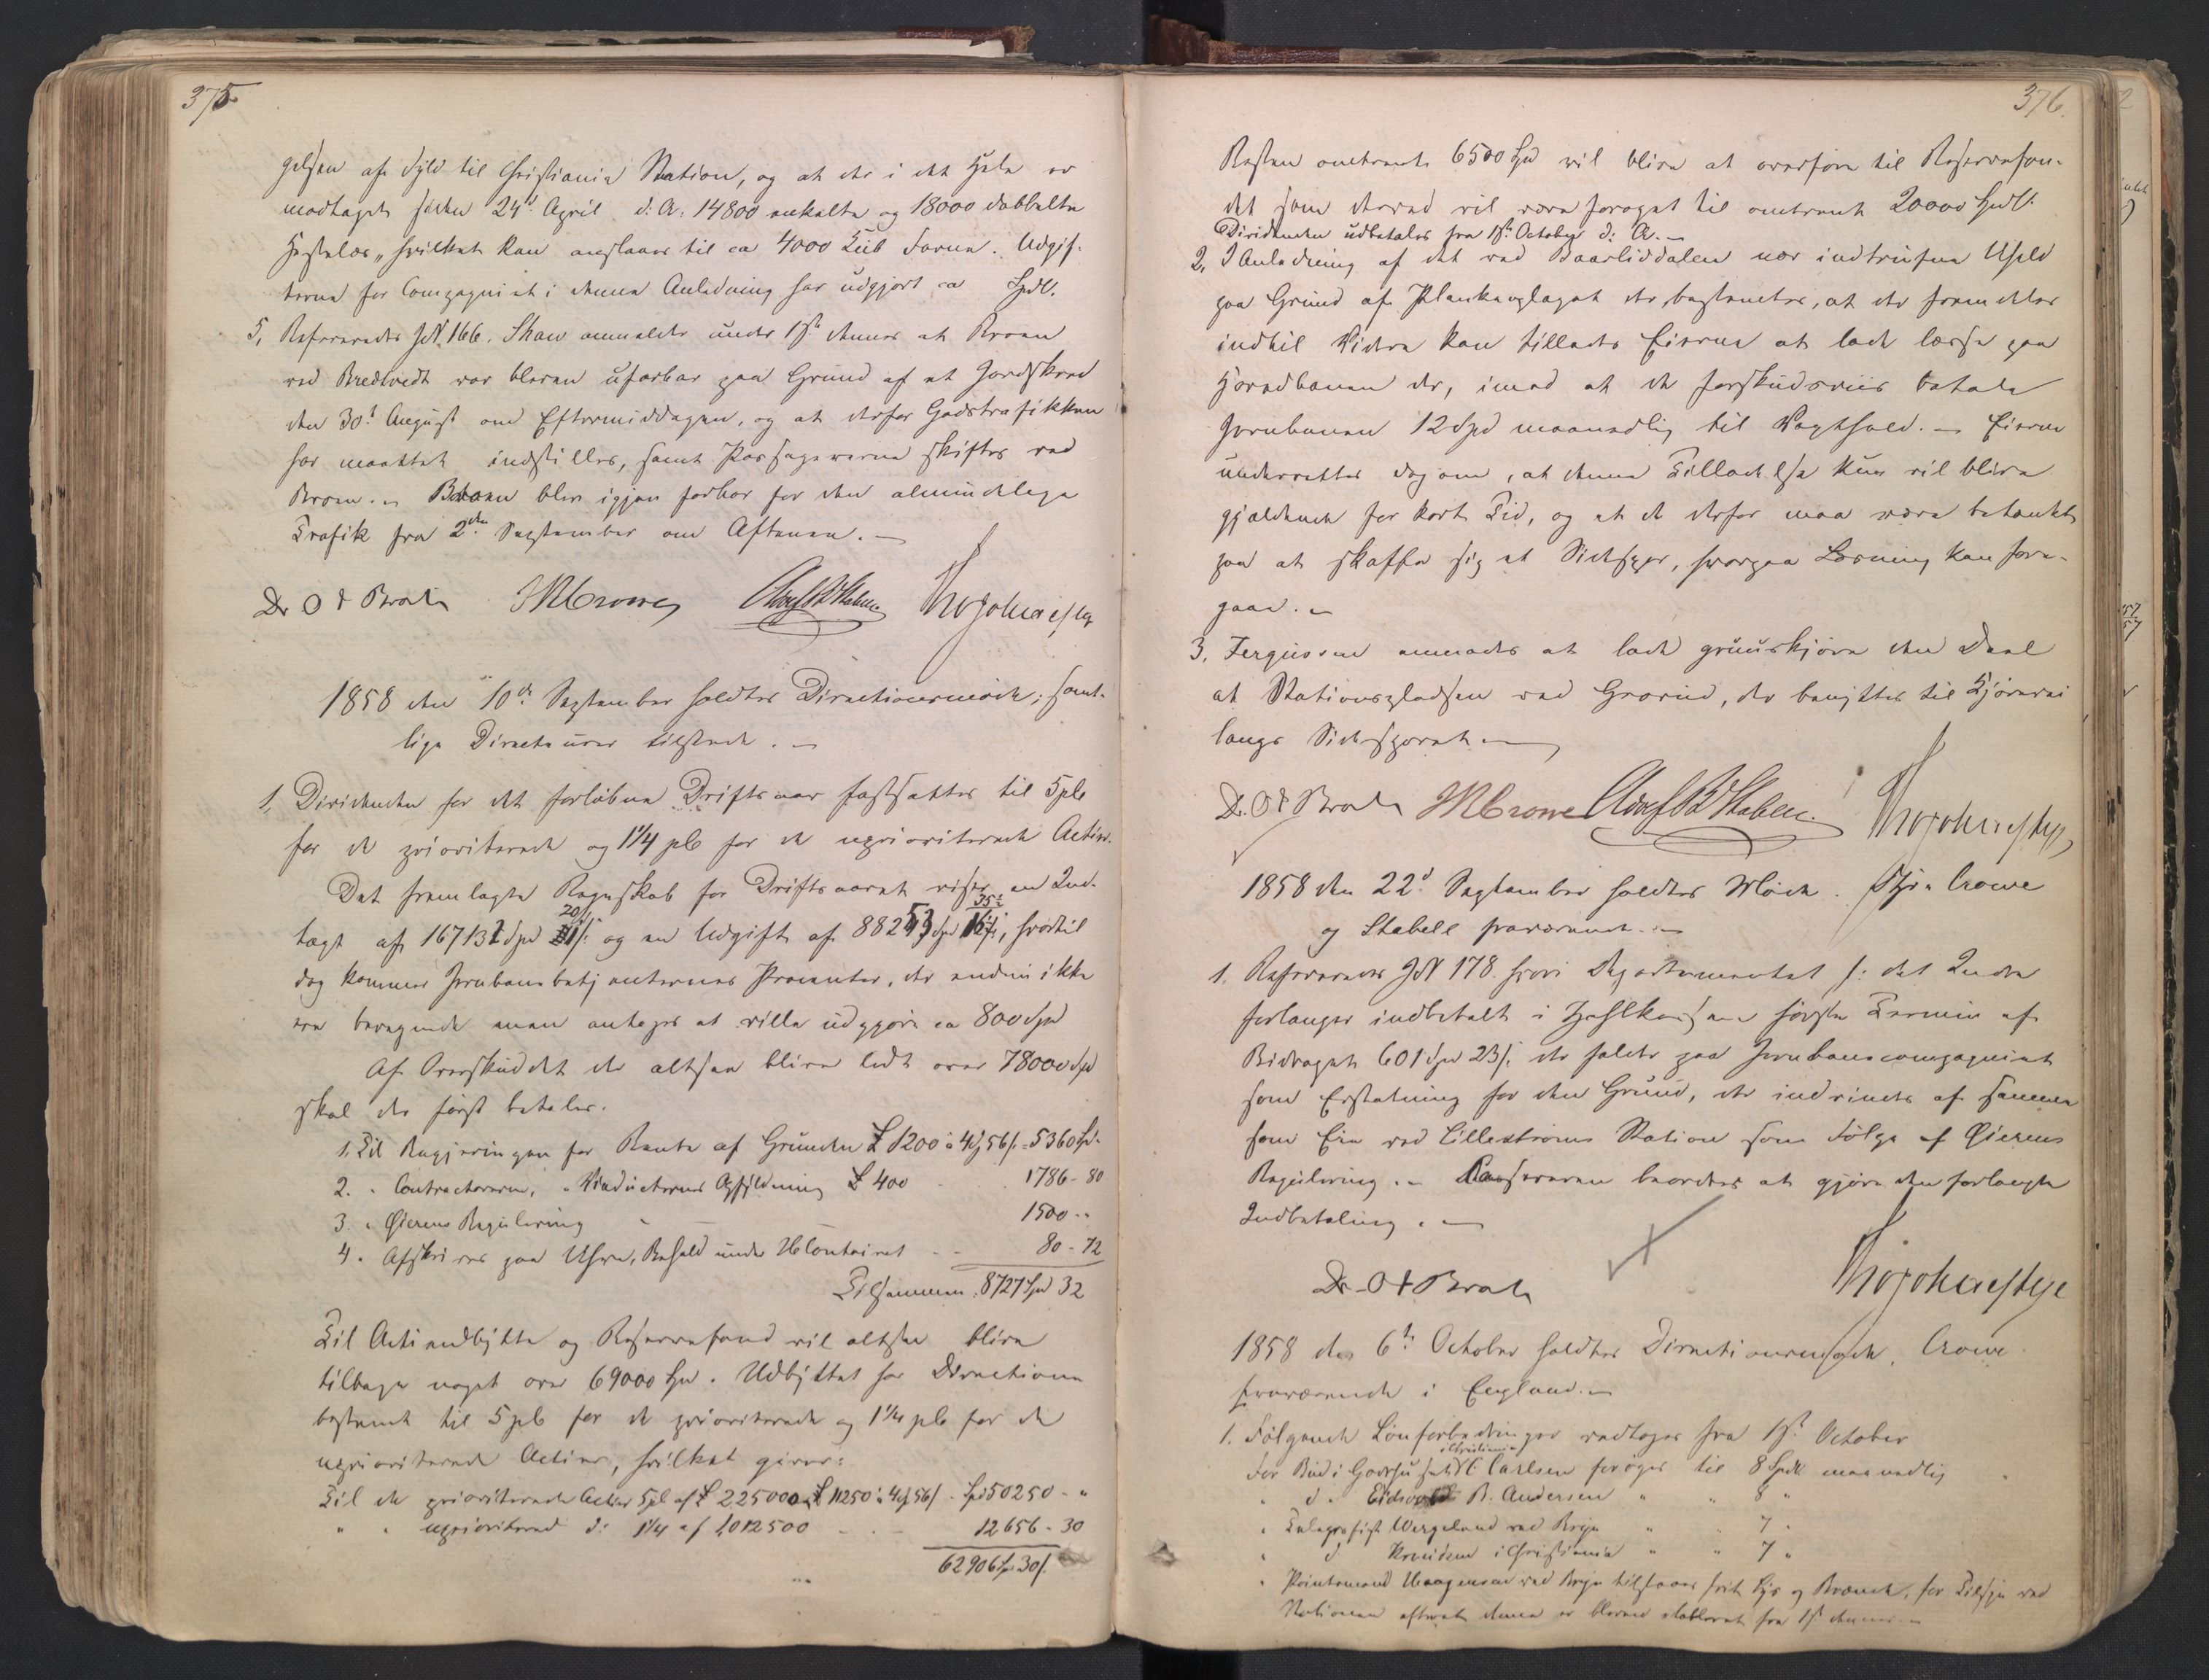 375
gelsen af Fyld til Christiania Station, og at der i det Hele er
modtaget siden 24d April d: A: 14800 enkelte og 18000 dobbelte
Hestelæs, hvilket kan anslaaes til ca 4000 Kub Favne. Udgif-
terne for Compagniet i denne Anledning har udgjort ca Spdl.
5, Refereredes JN 166. Shaw anmeldte under 1ste dennes at Broen
ved Bredtvedt var bleven ufarbar paa Grund af et Jordskred
den 30t August om Eftermiddagen, og at derfor Godstrafikken
har maattet indstilles, samt Passagererne skiftes ved
Broen. – Broen blev igjen farbar for den almindelige
Trafik fra 2den September om Aftenen. –
Dr O J Broch JRCrowe Adolf B Stabell ThoJohannes Heftye
1858 den 10de September holdtes Directionsmøde; samt-
lige Directeurer tilstede. –
1, Dividenden for det forløbne Driftsaar fastsættes til 5 pC
for de prioriterede og 1 1/4 pC for de uprioriterede Actier.
Det fremlagte Regnskab for Driftsaaret viser en Ind-
tægt af 167132 Spd 20 ß: og en Udgift af 88253 Spd 35 ß, hvortil
dog kommer Jernbanebetjenternes Procenter, der endnu ikke
ere beregnede men antages at ville udgjøre ca 800 Spd
Af Overskuddet der altsaa bliver lidt over 78000 Spd
skal der først betales.
1. Til Regjeringen for Rente af Grunden £ 1200 à 4 Spd 56 ß. = 5360 Spd -
2. " Contracteurerne, " Viaducternes Opfyldning £ 400 - - 1786 - 80
3. " Øierens Regulering " — 1500 - "
4. " Afskrives paa Usven, Behold under Contoiret - - 80 - 72
Tilsammen: 8727 Spd 32
Til Actieudbytte og Reservefond vil altsaa blive
tilbage noget over 69000 Spd. Udbyttet har Directionen
bestemt til 5 pC for de prioriterede og 1 1/4 pC for de
uprioriterede Actier, hvilket giver:
Til de prioriterede Actier 5 pC af £ 225000 = £ 11250 à 4 Spd 56 ß - Spd 50250 - "
" " uprioriterede d: 1 1/4 af 1,012500 - - - 12656 - 30
62906 Sp: 30 ß
376.
Resten omtrent 6500 Spd vil blive at overføre til Reservefon-
det som derved vil være forøget til omtrent 20000 Spdl.
Dividenden udbetales fra 1ste October d: A. –
2, I Anledning af det ved Baarliddalen nær indtrufne Uheld
paa Grund af Plankeoplaget der, bestemtes, at der fremdeles
indtil Videre kan tillades Eierne at lade læsse paa
Hovedbanen der, imod at de forskudsviis betale
Jernbanen 12 Spd maanedlig til Vagthold. – Eierne
underrettes dog om, at denne Tilladelse kun vil blive
gjældende for kort Tid, og at de derfor maa være betænkte
paa at skaffe sig et Sidespor, hvorpaa Læsning kan fore-
gaae. –
3. Fergusson anmodes at lade gruuskjøre den Deel
af Stationspladsen ved Grorud, der benyttes til Kjørevei
langs Sidesporet. –
Dr. O J Broch JRCrowe Adolf B Stabell ThoJohannes Heftye
1858 den 22d September holdtes Møde. Hrr Crowe
og Stabell fraværende. –
1. Refereredes JN 178. hvori Departementet f: det Indre
forlanger indbetalt i Zahlkassen første Termin af
Bidraget 601 Spd 23 ß. der falder paa Jernbanecompagniet
som Erstatning for den Grund, der indvindes af samme
som Eier ved Lillestrøms Station som Følge af Øierens
Regulering. – Kassereren beordres at gjøre den forlangte
Indbetaling. –
Dr. O J Broch ThoJohannes Heftye
1858 den 6te October holdtes Directionsmøde. Crowe
fraværende i England. –
1. Følgende Lønforbedringer vedtoges fra 1ste October
i Christiania
For Bud i Godshuset C Carlsen forøges til 8 Spdl maanedlig
" d " Eidsvold B. Andersen " " 8 "
" Telegrafist Wergeland ved Bryn " " 7 "
" d Knudsen i Christiania " " 7 "
" Pointsmand Haagensen ved Bryn tilstaaes frit Lys og Brænde, for Tilsyn ved
Stationen efterat denne er bleven etableret fra 1ste dennes. –